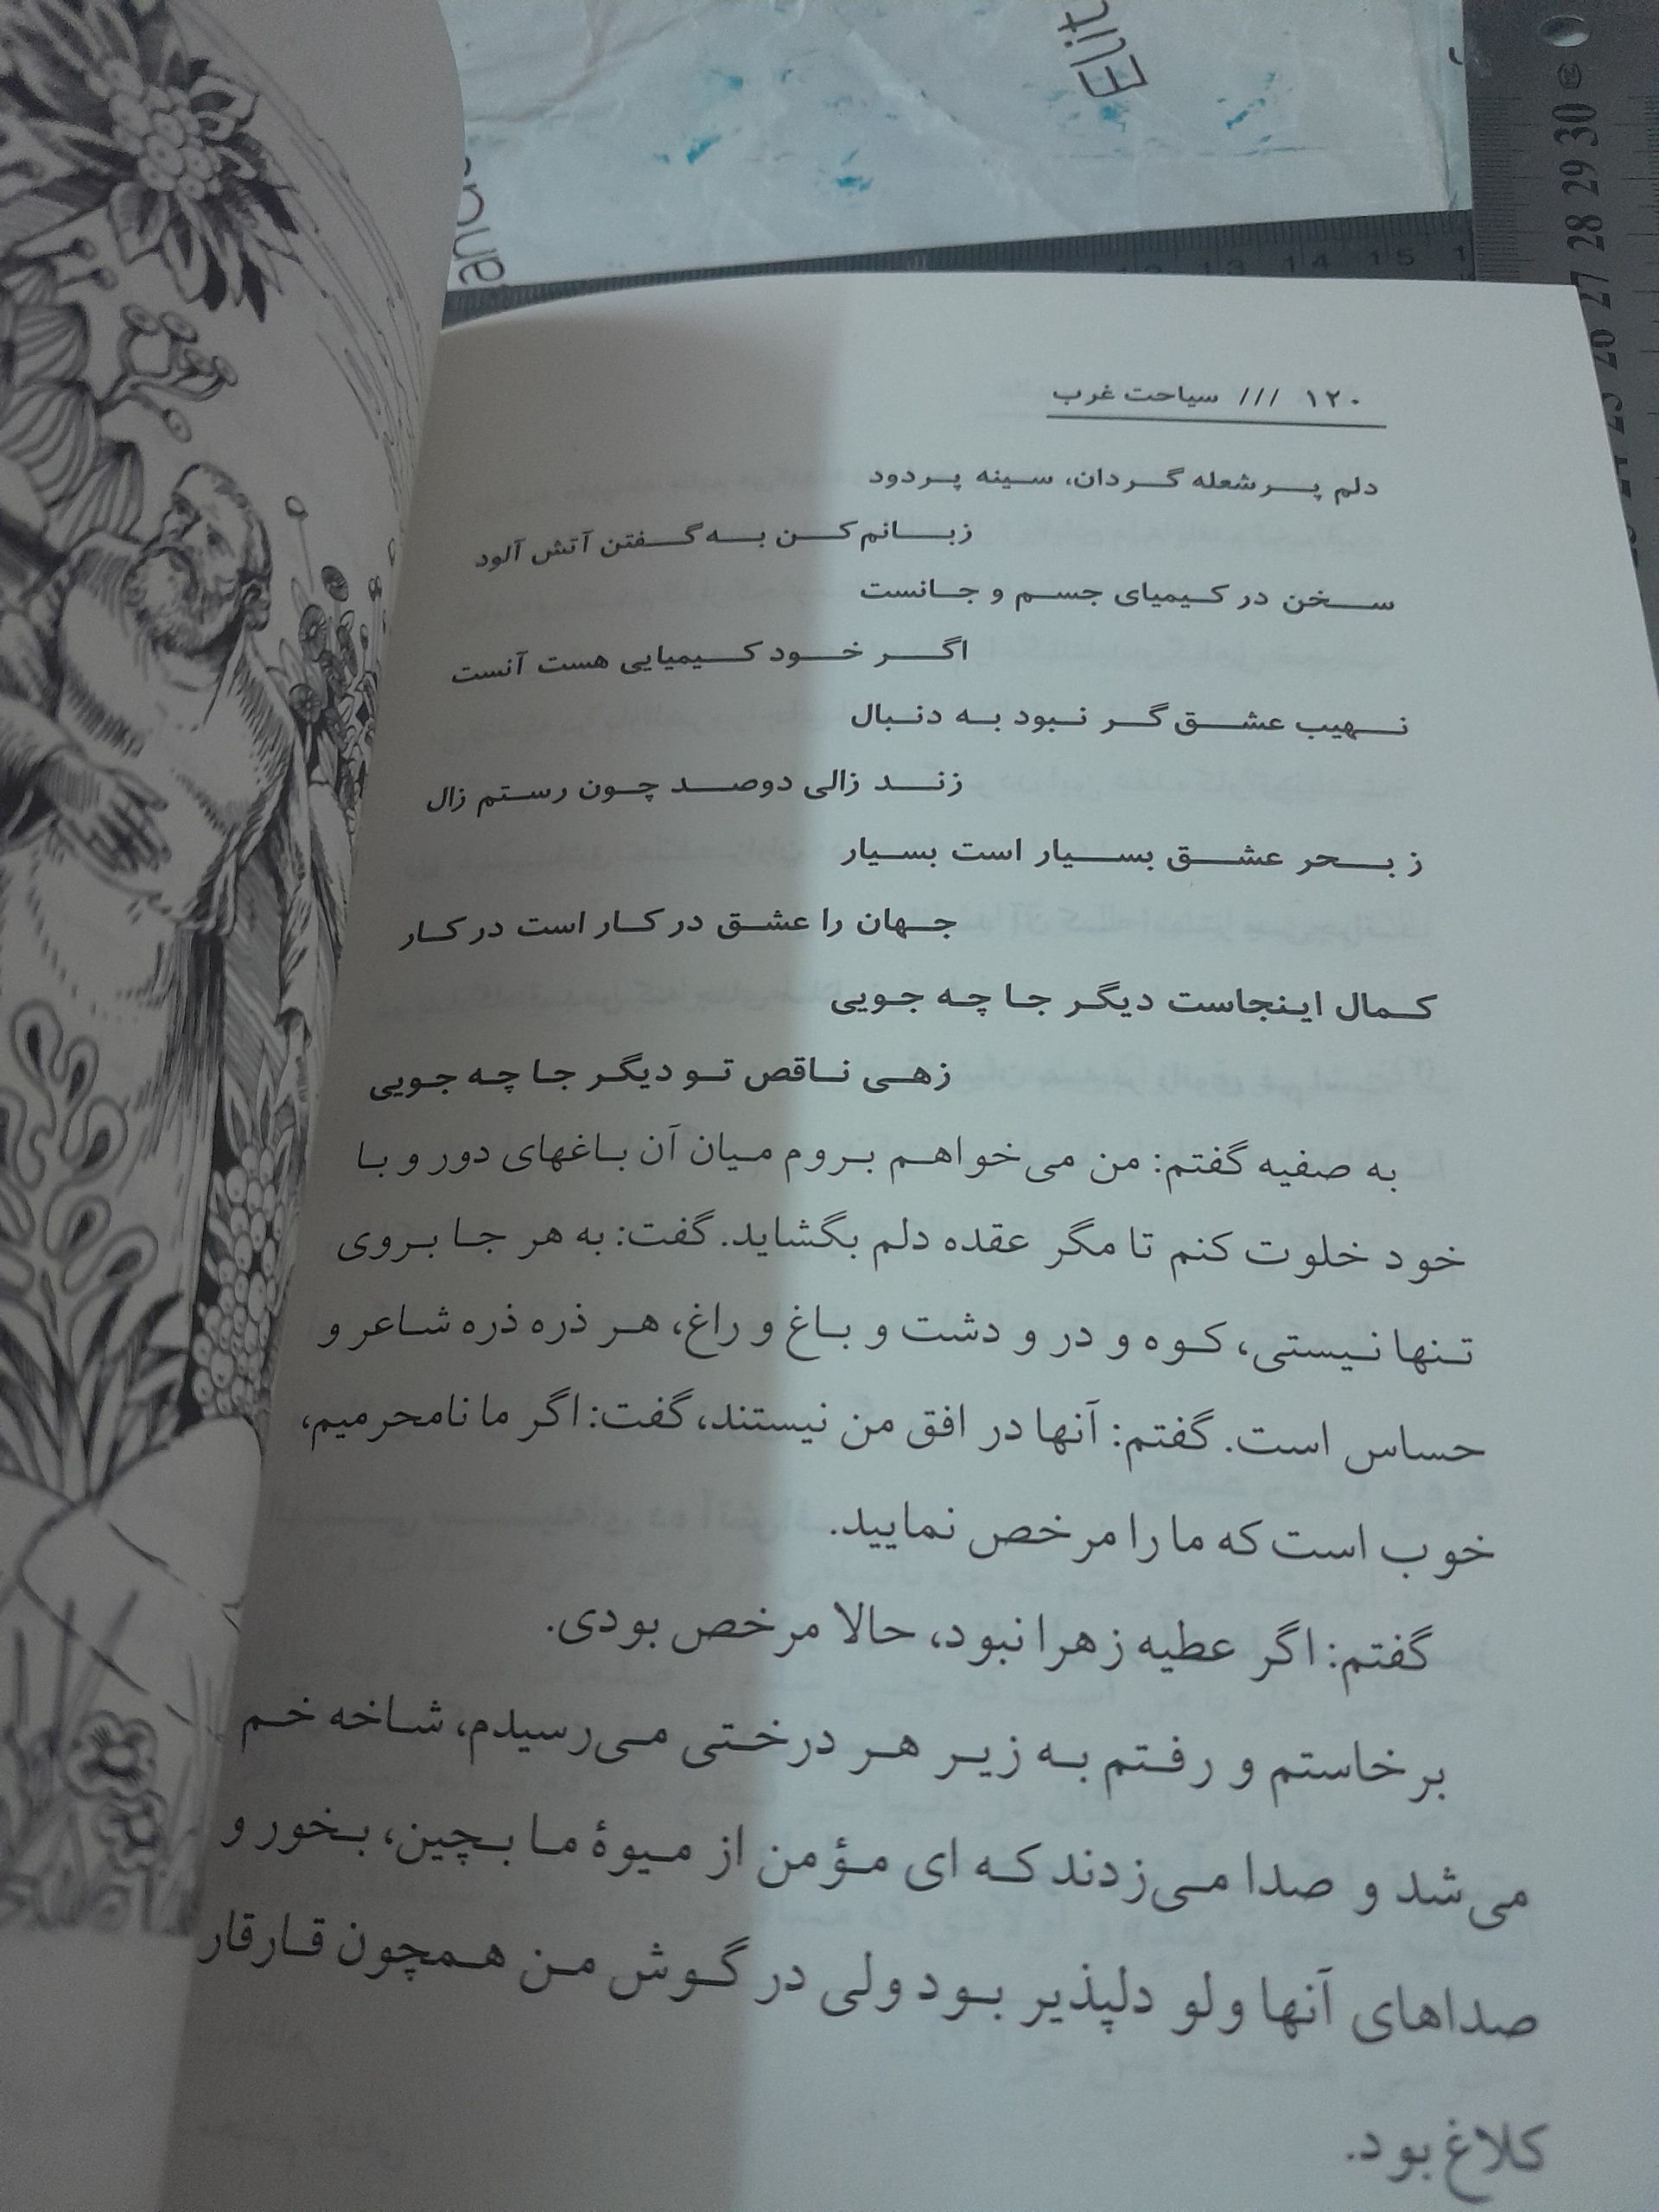 ۱۲۰ /// سیاحت غرب
دلم پر شعله گردان، سینه پردود
زبانم کن به گفتن آتش آلود
سخن در کیمیای جسم و جانست
اگر خود کیمیایی هست آنست
نهیب عشق گر نبود به دنبال
زند زالی دوصد چون رستم زال
ز بحر عشق بسیار است بسیار
جهان را عشق در کار است در کار
کمال اینجاست دیگر جا چه جویی
زهی ناقص تو دیگر جا چه جویی
به صفیه گفتم: من می‌خواهم بروم میان آن باغهای دور و با
خود خلوت کنم تا مگر عقده دلم بگشاید. گفت: به هر جا بروی
تنها نیستی، کوه و در و دشت و باغ و راغ، هر ذره ذره شاعر و
حساس است. گفتم: آنها در افق من نیستند، گفت: اگر ما نامحرمیم،
خوب است که ما را مرخص نمایید.
گفتم: اگر عطیه زهرا نبود، حالا مرخص بودی.
برخاستم و رفتم به زیر هر درختی می‌رسیدم، شاخه خم
می‌شد و صدا می‌زدند که ای مؤمن از میوۀ ما بچین، بخور و
صداهای آنها ولو دلپذیر بود ولی در گوش من همچون قارقار
کلاغ بود.
30
29
28
27
13 14 15